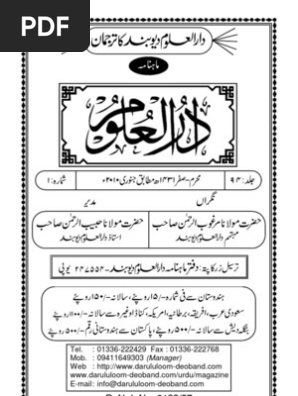 PDF
دارالعلوم دیوبند کا ترجمان
ماہنامہ
دارالعلوم
جلد: ۹۴ محرم-صفر ۱۴۳۱ھ مطابق جنوری ۲۰۱۰ء شمارہ: ۱
نگراں مدیر
حضرت مولانا مرغوب الرحمٰن صاحب حضرت مولانا حبیب الرحمٰن صاحب
مہتمم دارالعلوم دیوبند استاذ دارالعلوم دیوبند
ترسیل زر کا پتہ: دفتر ماہنامہ دارالعلوم دیوبند-۲۴۷۵۵۴ یوپی
ہندوستان سے فی شمارہ -/۱۵ روپئے، سالانہ -/۱۵۰ روپئے
سعودی عرب، افریقہ، برطانیہ، امریکہ، کناڈا وغیرہ سے سالانہ
بنگلہ دیش سے سالانہ -/۵۰۰ روپئے، پاکستان سے ہندوستانی رقم -/۵۰۰ روپئے
Tel. : 01336-222429 Fax : 01336-222768
Mob. : 09411649303 (Manager)
Web : http://www.darululoom-deoband.com
www.darululoom-deoband.com/urdu/magazine
E-mail: info@darululoom-deoband.com